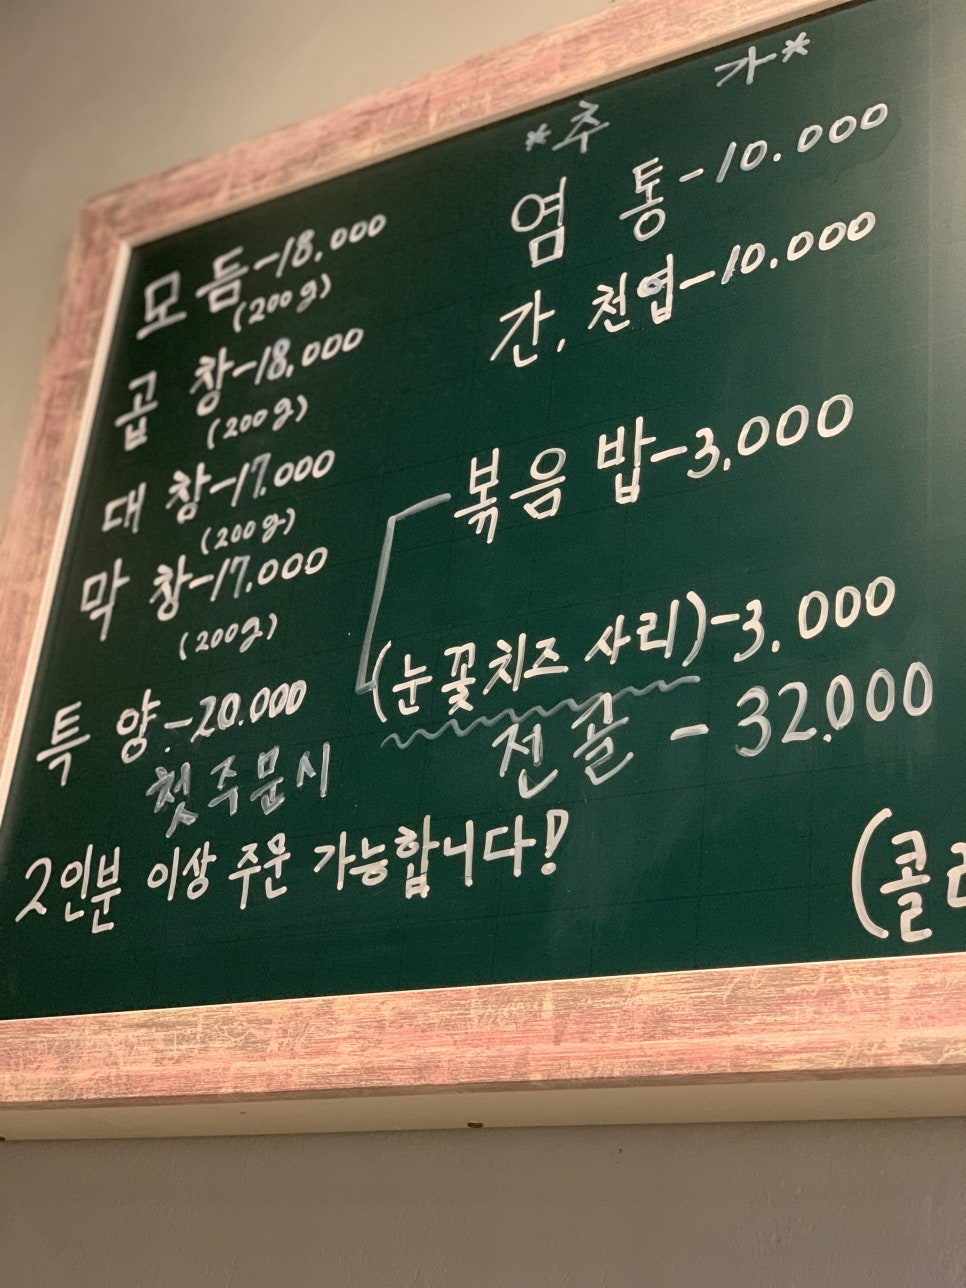 모 듬-18,000
(200g)
곱 창-18,000
(200g)
대 창-17.000
(200g)
막 창-17.000
(200g)
특 양.-20.000
첫주문시
2인분 이상 주문 가능합니다!
*추 가*
염 통-10.000
간, 천엽-10.000
볶음 밥-3,000
(눈꽃치즈 사리)-3,000
전골 - 32,000
(콜